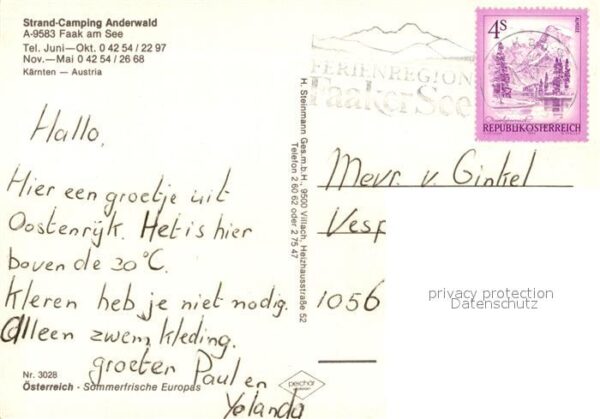 Strand-Camping Anderwald
A-9583 Faak am See
Tel. Juni—Okt. 0 42 54 / 22 97
Nov.—Mai 0 42 54 / 26 68
Kärnten — Austria
Hallo,
Hier een groetje uit
Oostenrijk. Het is hier
boven de 30°C.
Kleren heb je niet nodig.
Alleen zwemkleding.
groeten Paul en
Yolanda
Nr. 3028
Österreich - Sommerfrische Europas
H. Steinmann Ges.m.b.H., 9500 Villach, Heizhausstraße 52
Telefon 2 60 62 oder 2 75 47
FERIENREGION
Faaker See
4S
ALMSEE
REPUBLIK ÖSTERREICH
Mevr. v. Ginkel
Vesp
1056
privacy protection
Datenschutz